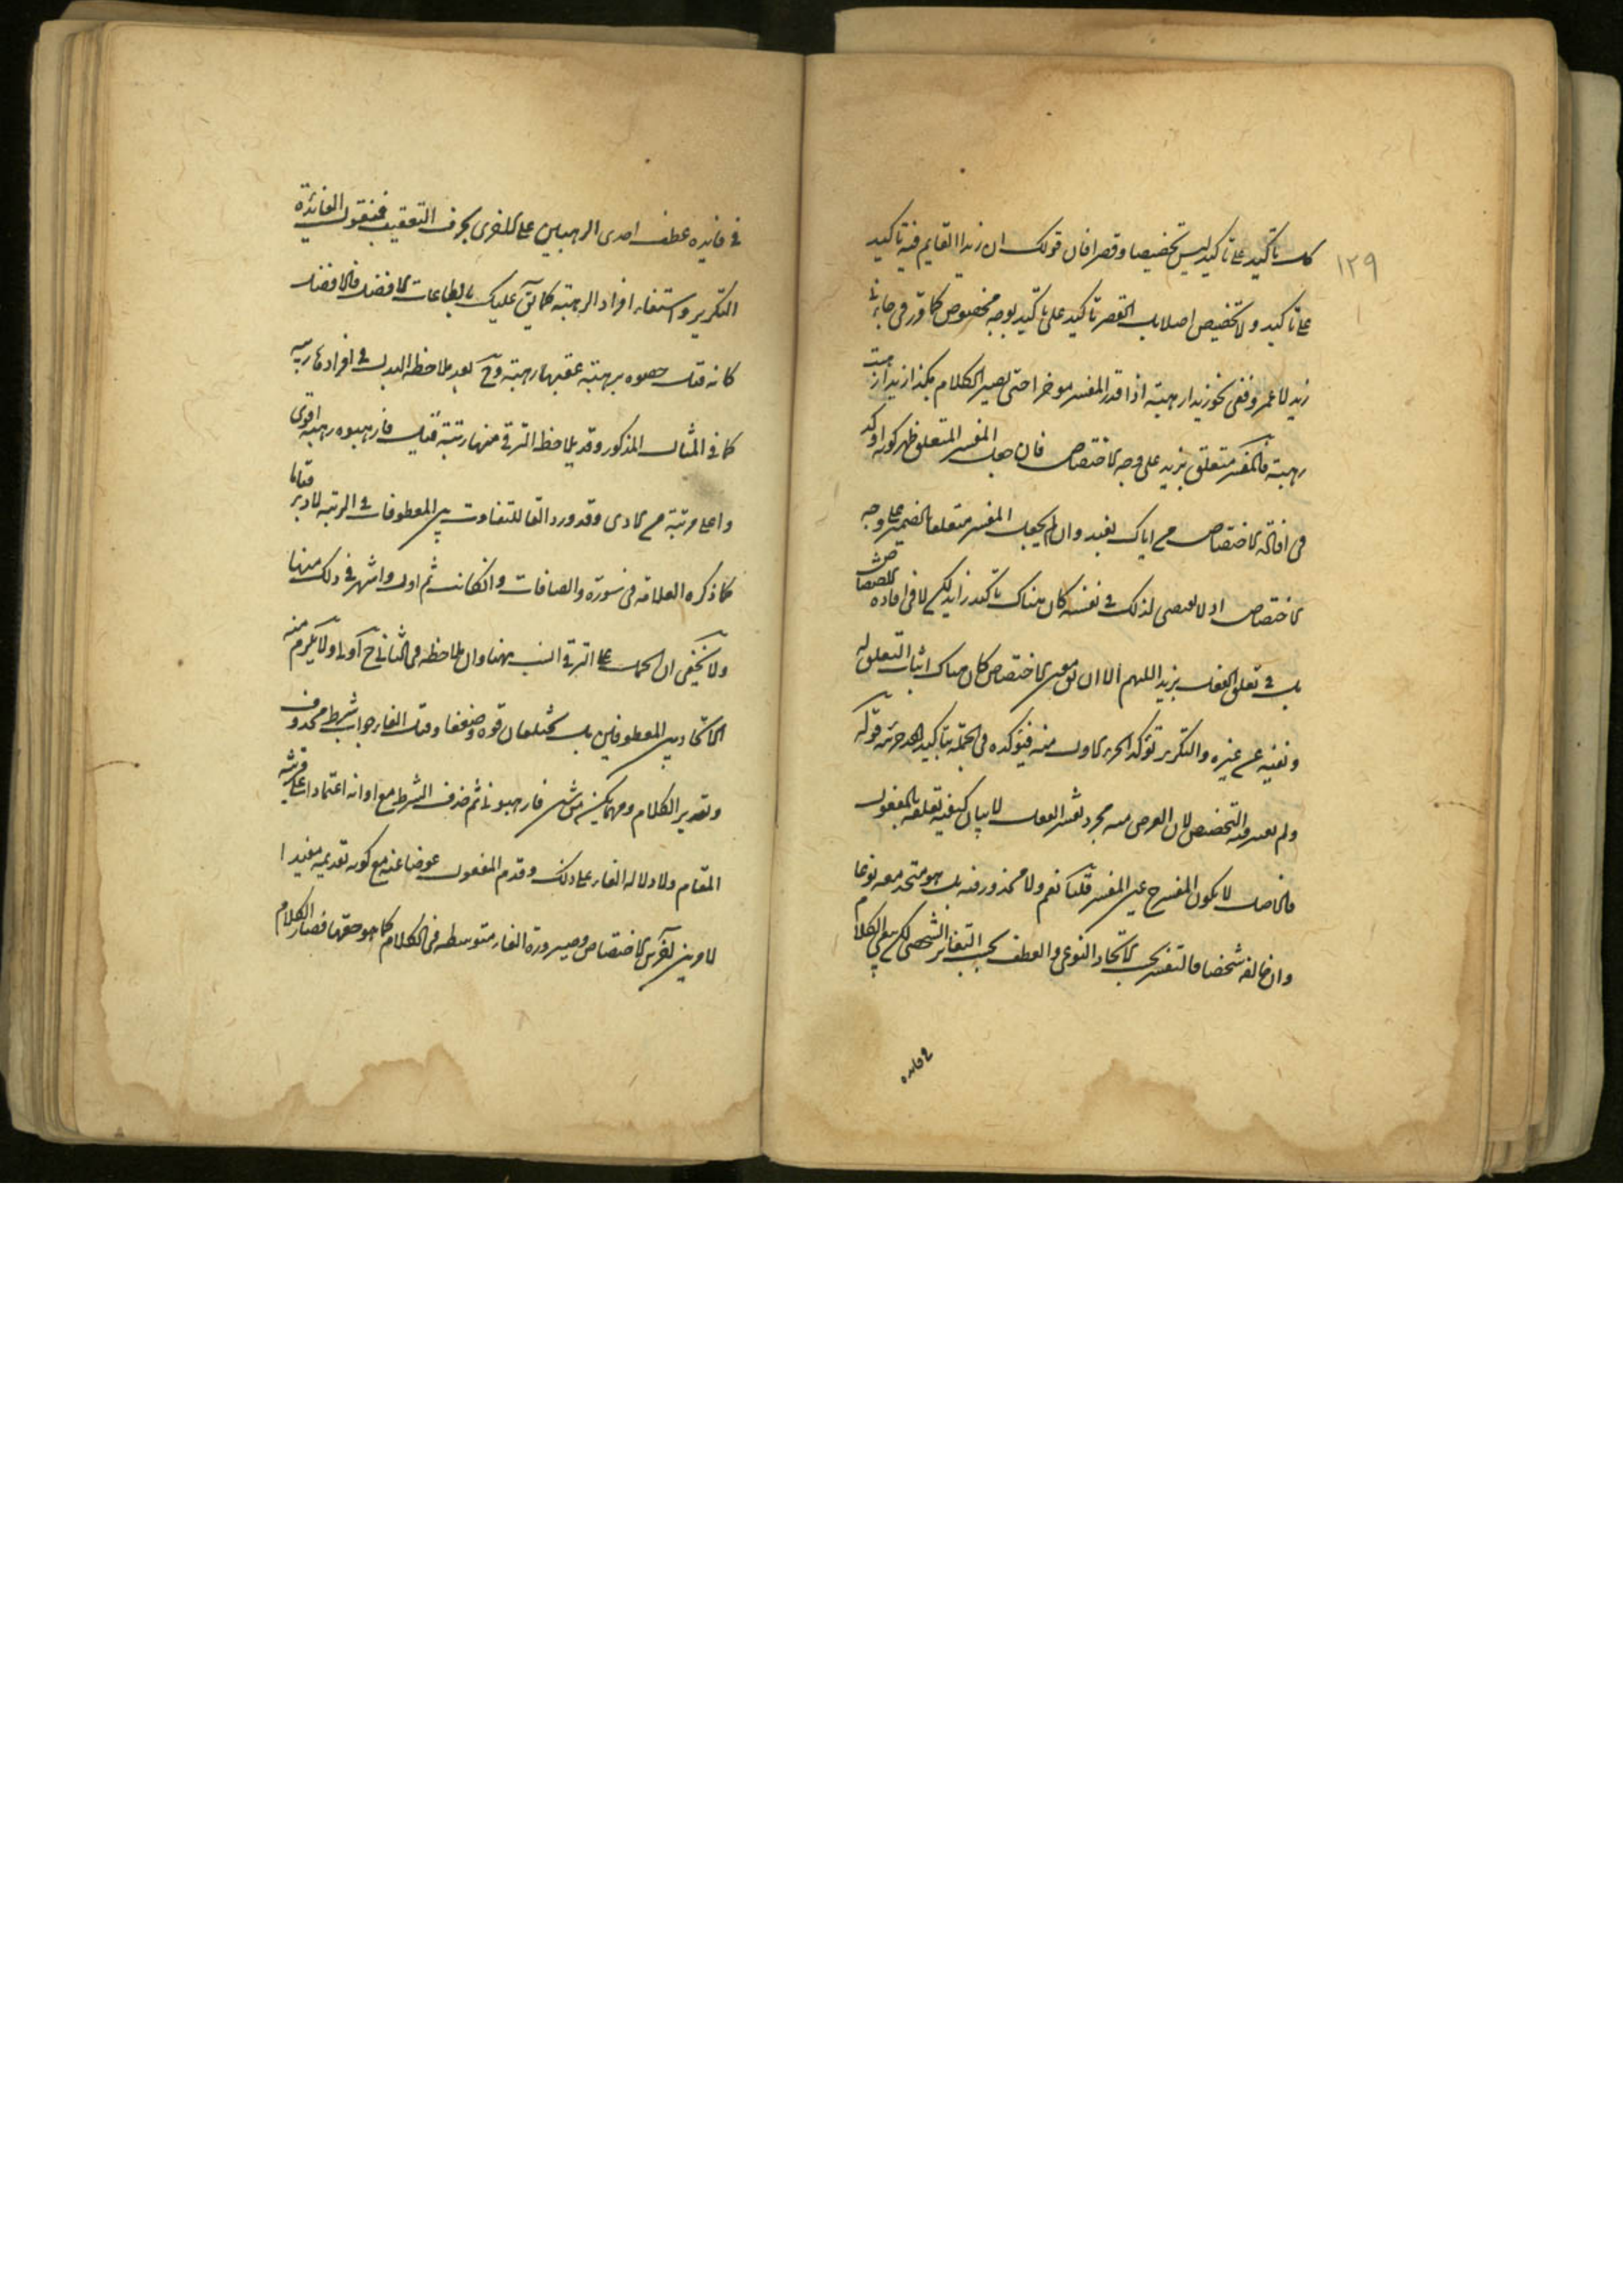 ١٢٩
كل تاكيد على تاكيد ليس تخصيصا وقصرا فان قولك ان زيدا القايم فيه تاكيد
على تاكيد ولا تخصيص اصلا بل القصر تاكيد على تاكيد بوجه مخصوص كما قرر في جاءني
زيد لا عمرو ففي نحو زيدا رهبته اذا قدر المفسر موخرا حتى يصير الكلام هكذا زيدا رهبت
رهبته فالمفسر متعلق بزيد على وجه الاختصاص فان جعل المفسر المتعلق ظهر كونه اوكد
في افادة الاختصاص من اياك نعبد وان لم يجعل المفسر متعلقا بالضمير على وجه
الاختصاص اذ لا لذلك في نفسه كان هناك تاكيد زايد لكن لا في افادة
بل في تعلق الفعل بزيد اللهم الا ان الاختصاص كان هناك اثبات التعلق له
ونفيه عن غيره والتكرير توكد الاول منه فيوكده في الجملة بتاكيد احد جزئيه قوله
ولم التخصيص لان الغرض منه مجرد تفسير الفعل لا بيان كيفية تعلقه بالمفعول
فالحاصل لا يكون المفسر ح عين المفسر قلنا نعم ولا محذور فيه بل هو متحد معه نوعا
وان خالفه شخصا فالتفسير بحسب الاتحاد النوعي والعطف بحسب التغاير الشخصي لكن بقي الكلام
في فايدة
في فايدة عطف احدى الرهبتين على الاخرى بحرف التعقيب فنقول الفائدة
التكرير واستيفاء افراد الرهبة كما يق عليك بالطاعات الافضل فالافضل
كانه قيل برهبة عقبها رهبة وح بعد ملاحظة البدل في افرادها
كما في المثال المذكور وقد يلاحظ الترقي منها رتبة قيل فارهبوه رهبة اقوى
واعلى مرتبة من الاولى وقد ورد الفا للتفاوت بين المعطوفات في الرتبة
كما ذكره العلامة في سورة والصافات وان كانت ثم اولى واشهر في ذلك منها
ولا يخفى ان الحمل على الترقي انسب ههنا وان ملاحظة في الثاني ح اولى اولا يلزم منه
الاتحاد بين المعطوفين بل يختلفان قوة وضعفا وقيل الفا جواب شرط محذوف
وتقدير الكلام ومهما يكن من شي فارهبوني ثم حذف الشرط مع اداته اعتمادا على قرينة
المقام ولا دلالة الفاء على ذلك وقدم المفعول عوضا عنه مع كون تقديمه مفيدا
لامرين آخرين الاختصاص وصيرورة الفاء متوسطة في الكلام كما هو حقها فصار الكلام